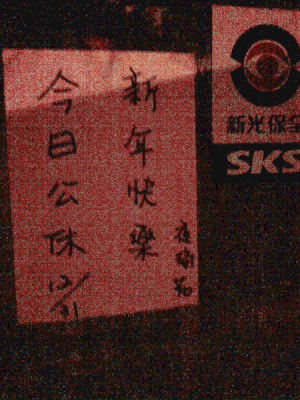 新年快樂
今日公休 12/31
新光保全
SKS